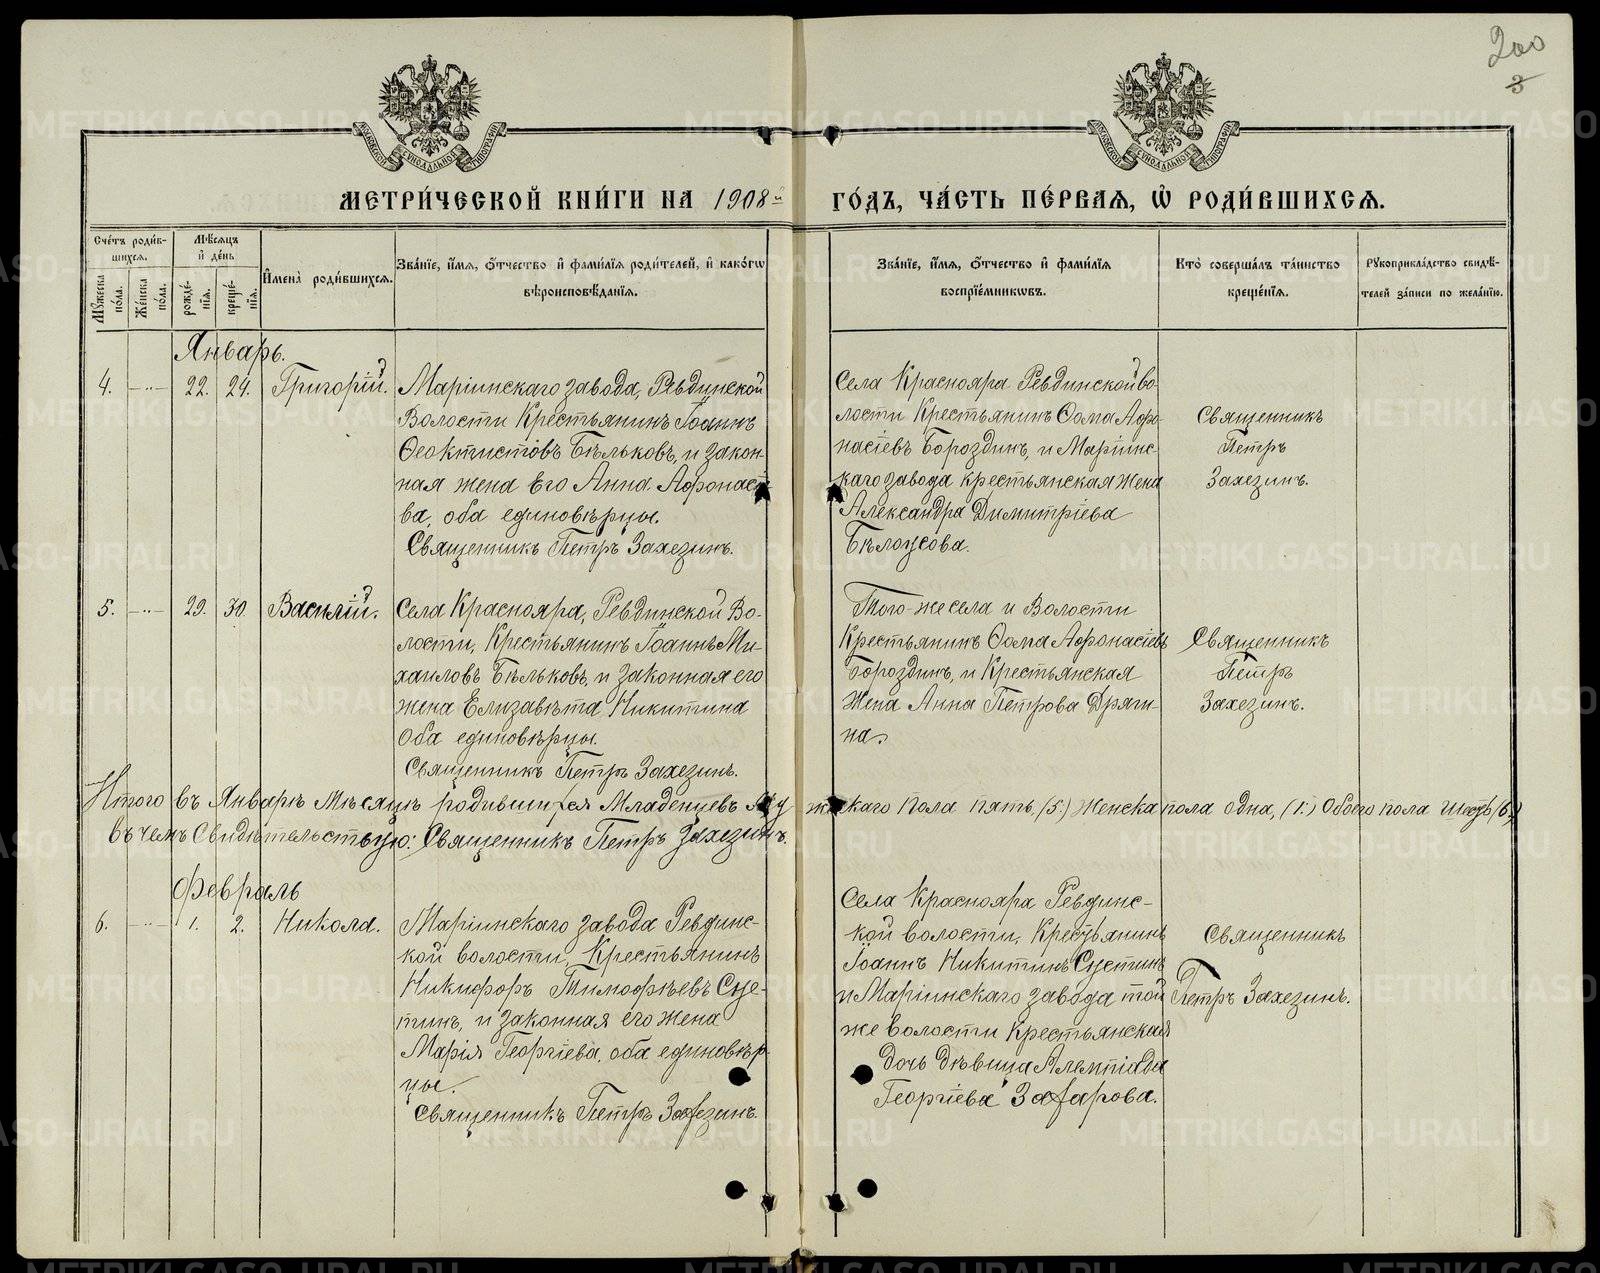 200
3
МОСКОВСКОЙ СѴНОДАЛЬНОЙ ТИПОГРАФІИ
МОСКОВСКОЙ СѴНОДАЛЬНОЙ ТИПОГРАФІИ
МЕТРИ́ЧЕСКОЙ КНИ́ГИ НА 1908й ГО́ДЪ, ЧА́СТЬ ПЕ́РВАѦ, Ѽ РОДИ́ВШИХСѦ.
Сче́тъ роди́в-
шихсѧ.
Мѣ́сѧцъ
и҆ де́нь
Мꙋ́жеска по́ла.
Же́нска по́ла.
рожде́-
нїѧ.
креще́-
нїѧ.
И҆мена̀ роди́вшихсѧ.
Зва́нїе, и҆́мѧ, ѻ҆́тчество и҆ фами́лїѧ роди́телей, и҆ како́гѡ
вѣроисповѣ́данїѧ.
Зва́нїе, и҆́мѧ, ѻ҆́тчество и҆ фами́лїѧ
воспрїе́мникѡвъ.
Кто̀ соверша́лъ та́инство
креще́нїѧ.
Рꙋкоприкла́дство свидѣ́-
телей за́писи по жела́нїю.
Январь.
4. -"- 22. 24. Григорій.
Маріинскаго завода, Ревдинской
Волости Крестьянинъ Іоаннъ
Ѳеоктистовъ Бѣльковъ, и закон-
ная жена Его Анна Афонасіе-
ва, оба единовѣрцы.
Священникъ Петръ Захезинъ.
Села Краснояра Ревдинской во-
лости Крестьянинъ Ѳома Афо-
насіевъ Бороздинъ, и Маріинс-
каго завода крестьянская жена
Александра Димитріева
Бѣлоусова.
Священникъ
Петръ
Захезинъ.
5. -"- 29. 30. Василій.
Села Краснояра, Ревдинской Во-
лости, Крестьянинъ Іоаннъ Ми-
хаиловъ Бѣльковъ, и законная его
жена Елизавѣта Никитина
Оба единовѣрцы.
Священникъ Петръ Захезинъ.
Того-же села и Волости
Крестьянинъ Ѳома Афонасіевъ
Бороздинъ, и Крестьянская
Жена Анна Петрова Дряги-
на.
Священникъ
Петръ
Захезинъ.
Итого въ Январѣ Мѣсяцѣ родившихся Младенцевъ Мужескаго Пола пять, (5.) Женска пола одна, (1.) Обоего пола шесть (6.)
въ чемъ Свидѣтельствую: Священникъ Петръ Захезинъ.
Февраль
6. -"- 1. 2. Никола.
Маріинскаго завода Ревдинс-
кой волости, Крестьянинъ
Никифоръ Тимофѣевъ Суе-
тинъ, и законная его жена
Марія Георгіева, оба единовѣр-
цы.
Священникъ Петръ Захезинъ.
Села Краснояра Ревдинс-
кой волости, Крестьянинъ
Іоаннъ Никитинъ Суетинъ
и Маріинскаго завода той
же волости крестьянская
дочь дѣвица Алемпіада
Георгіева Захарова.
Священникъ
Петръ Захезинъ.
METRIKI.GASO-URAL.RU